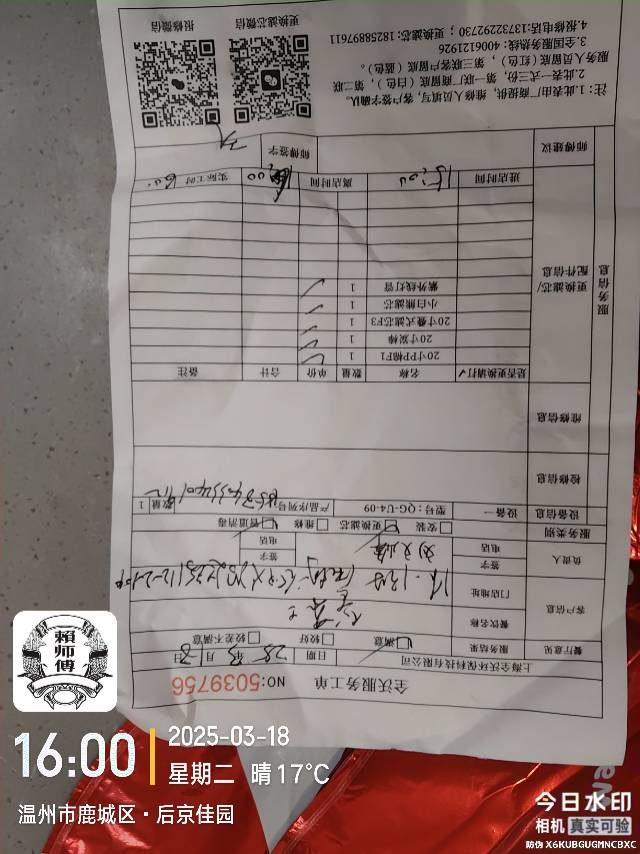 全沃服务工单
NO:5039756
上海全沃环保科技有限公司
日期 25年3月18日
餐厅意见 服务结果 满意 较好 较差不满意
客户信息 餐饮名称
门店地址
负责人 签字 签字
电话 电话
服务类别 安装 更换滤芯 维修 管道消毒
设备信息 设备一 型号:QG-U4-09 产品序列号 数量 1
检修信息
维修信息
服务信息
更换滤芯/配件信息
是否更换请打√ 名称 数量 单价 合计 备注
20寸PP棉F1 1
20寸炭棒 1
20寸叠式滤芯F3 1
小白熊滤芯 1
紫外线灯管 1
进店时间 15:00 离店时间 16:00 实际工时 60
师傅建议 师傅签字
注:1.此表由厂商提供,维修人员填写,客户签字确认。
2.此表一式三份,第一联厂商留底(白色),第二联
服务人员留底(红色),第三联客户留底(蓝色)。
3.全国服务热线:4006121926
4.报修电话:13732292730;更换滤芯:18258897611
更换滤芯微信
报修微信
賴師傅
16:00
2025-03-18
星期二 晴 17°C
温州市鹿城区·后京佳园
今日水印
相机 真实可验
防伪 X6KUBGUGMNCBXC